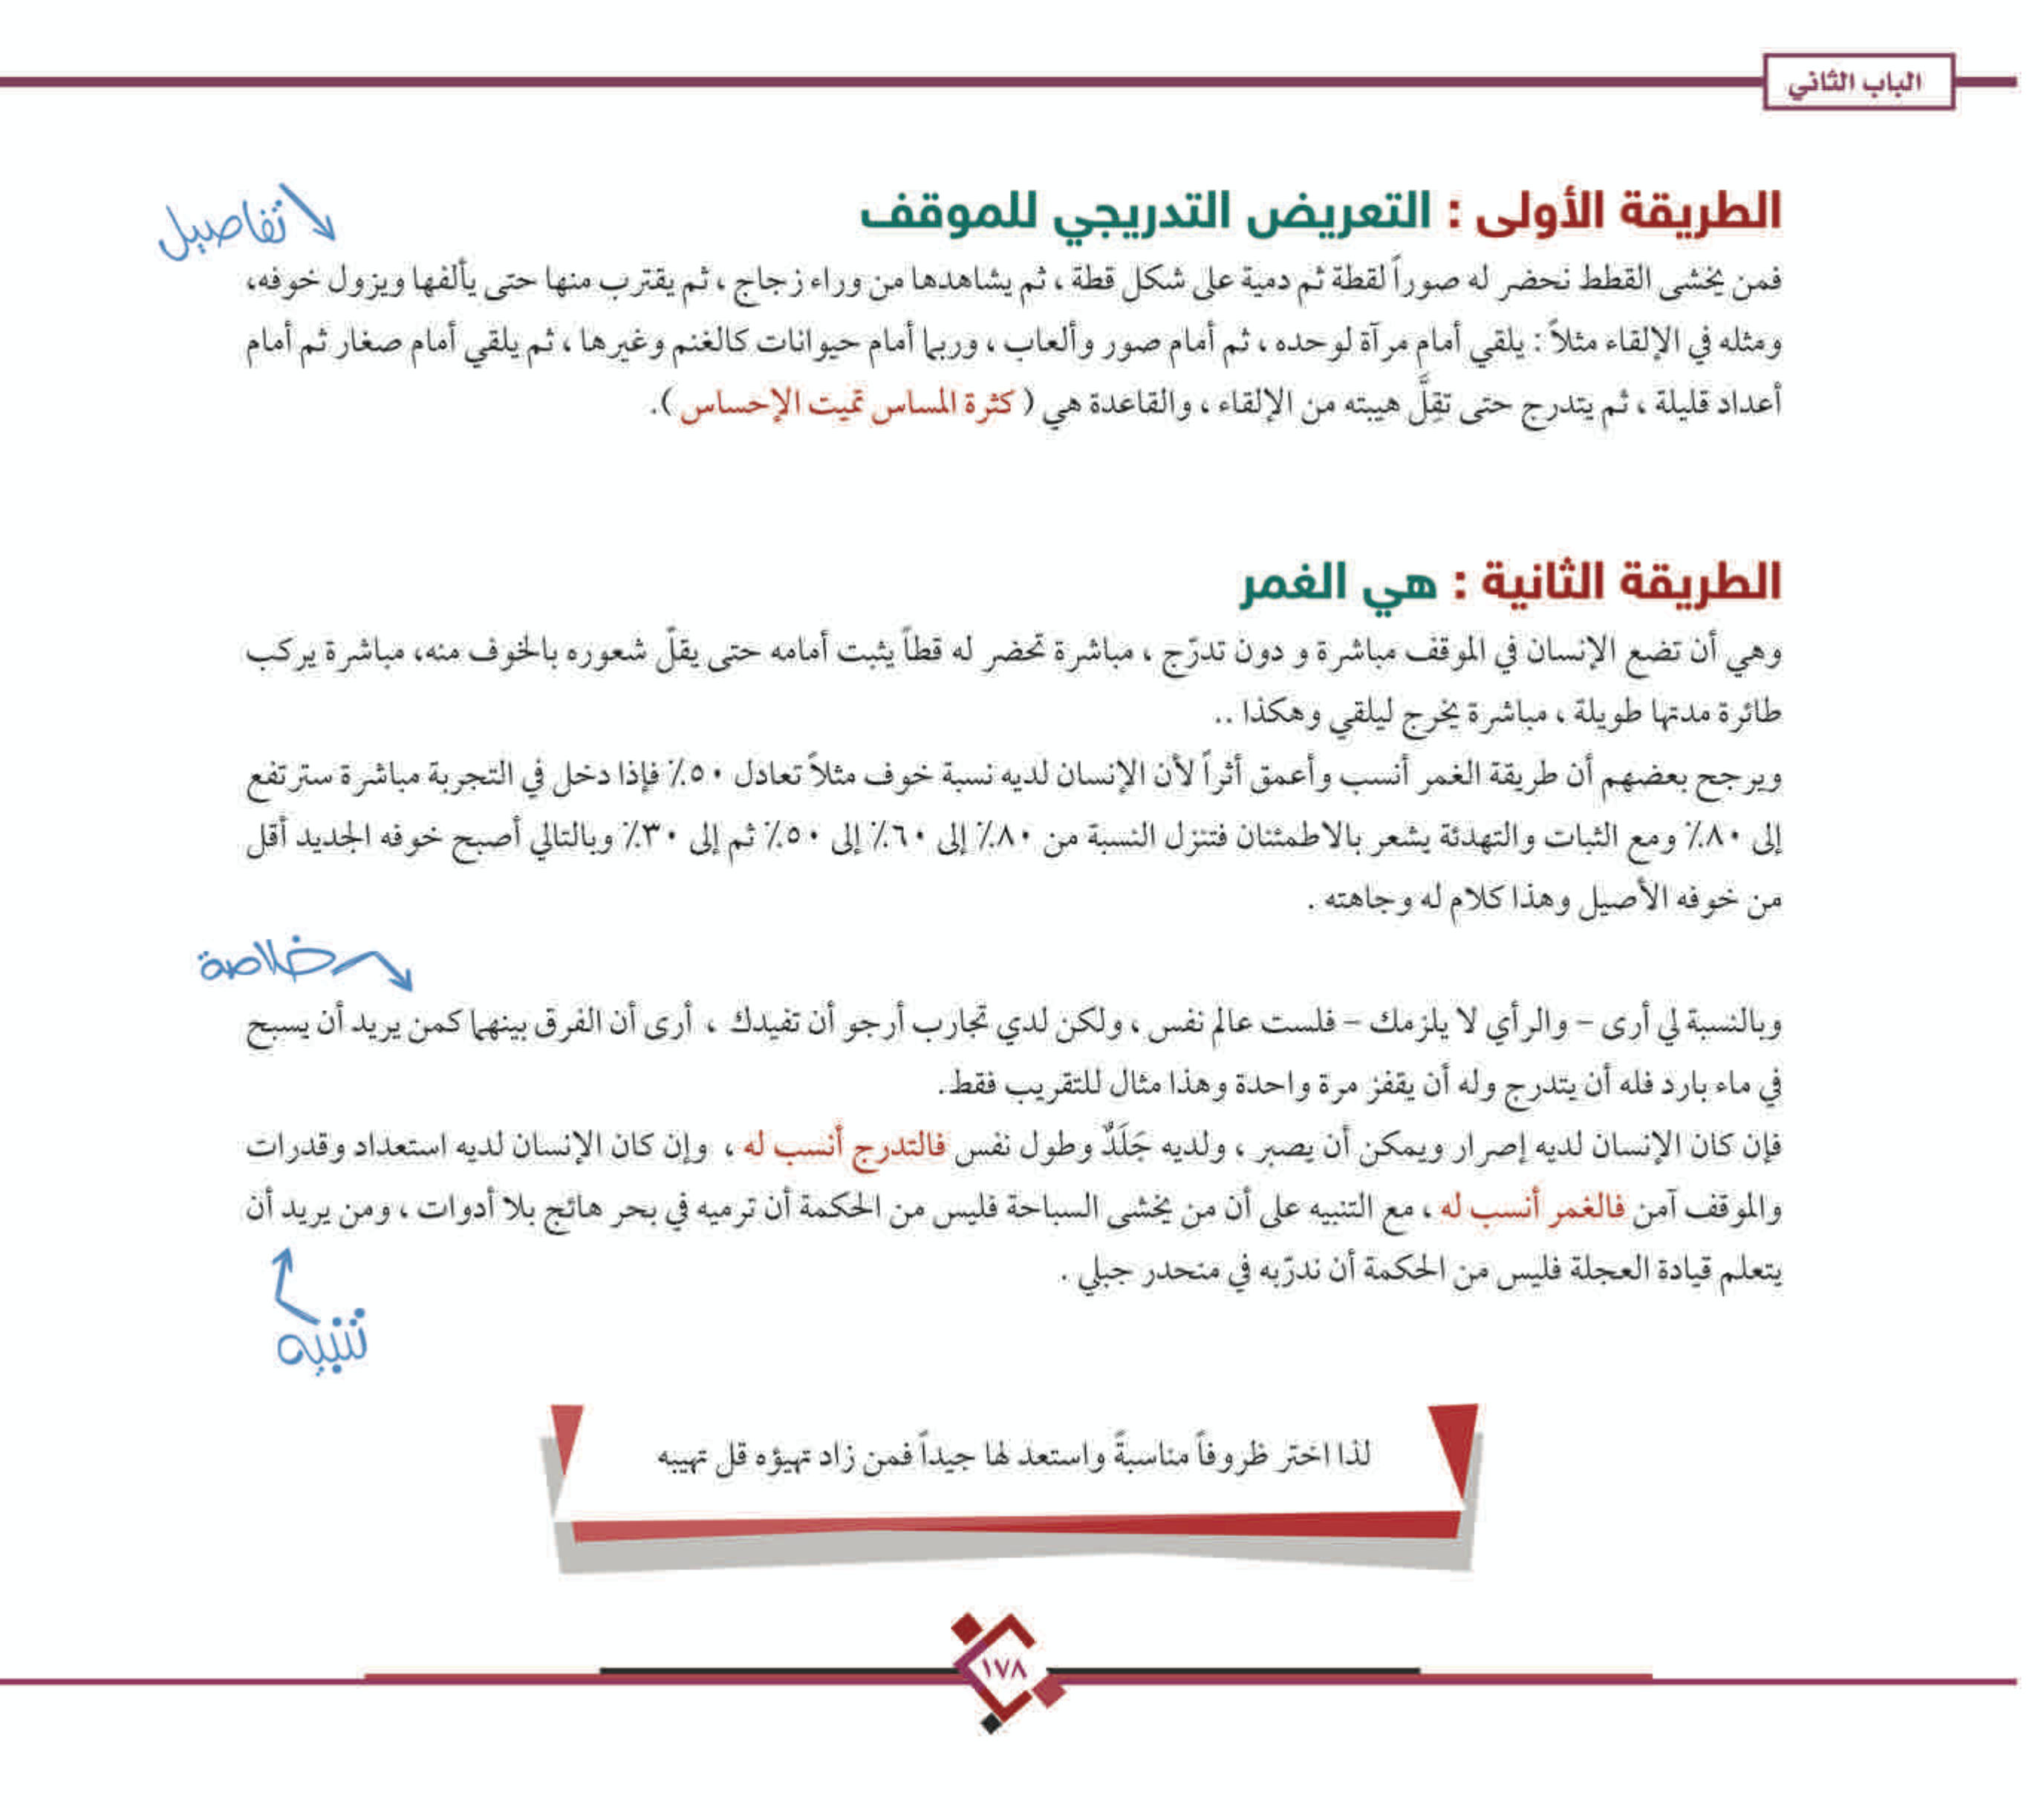 الباب الثاني
الطريقة الأولى : التعريض التدريجي للموقف
تفاصيل
فمن يخشى القطط نحضر له صوراً لقطة ثم دمية على شكل قطة ، ثم يشاهدها من وراء زجاج ، ثم يقترب منها حتى يألفها ويزول خوفه،
ومثله في الإلقاء مثلاً : يلقي أمام مرآة لوحده ، ثم أمام صور وألعاب ، وربما أمام حيوانات كالغنم وغيرها ، ثم يلقي أمام صغار ثم أمام
أعداد قليلة ، ثم يتدرج حتى تقِلَّ هيبته من الإلقاء ، والقاعدة هي ( كثرة المساس تميت الإحساس ).
الطريقة الثانية : هي الغمر
وهي أن تضع الإنسان في الموقف مباشرة و دون تدرّج ، مباشرة تحضر له قطاً يثبت أمامه حتى يقلّ شعوره بالخوف منه، مباشرة يركب
طائرة مدتها طويلة ، مباشرة يخرج ليلقي وهكذا ..
ويرجح بعضهم أن طريقة الغمر أنسب وأعمق أثراً لأن الإنسان لديه نسبة خوف مثلاً تعادل ٥٠٪ فإذا دخل في التجربة مباشرة سترتفع
إلى ٨٠٪ ومع الثبات والتهدئة يشعر بالاطمئنان فتنزل النسبة من ٨٠٪ إلى ٦٠٪ إلى ٥٠٪ ثم إلى ٣٠٪ وبالتالي أصبح خوفه الجديد أقل
من خوفه الأصيل وهذا كلام له وجاهته .
خلاصة
وبالنسبة لي أرى – والرأي لا يلزمك – فلست عالم نفس ، ولكن لدي تجارب أرجو أن تفيدك ، أرى أن الفرق بينهما كمن يريد أن يسبح
في ماء بارد فله أن يتدرج وله أن يقفز مرة واحدة وهذا مثال للتقريب فقط.
فإن كان الإنسان لديه إصرار ويمكن أن يصبر ، ولديه جَلَدٌ وطول نفس فالتدرج أنسب له ، وإن كان الإنسان لديه استعداد وقدرات
والموقف آمن فالغمر أنسب له ، مع التنبيه على أن من يخشى السباحة فليس من الحكمة أن ترميه في بحر هائج بلا أدوات ، ومن يريد أن
يتعلم قيادة العجلة فليس من الحكمة أن ندرّبه في منحدر جبلي .
تنبيه
لذا اختر ظروفاً مناسبةً واستعد لها جيداً فمن زاد تهيؤه قل تهيبه
١٧٨